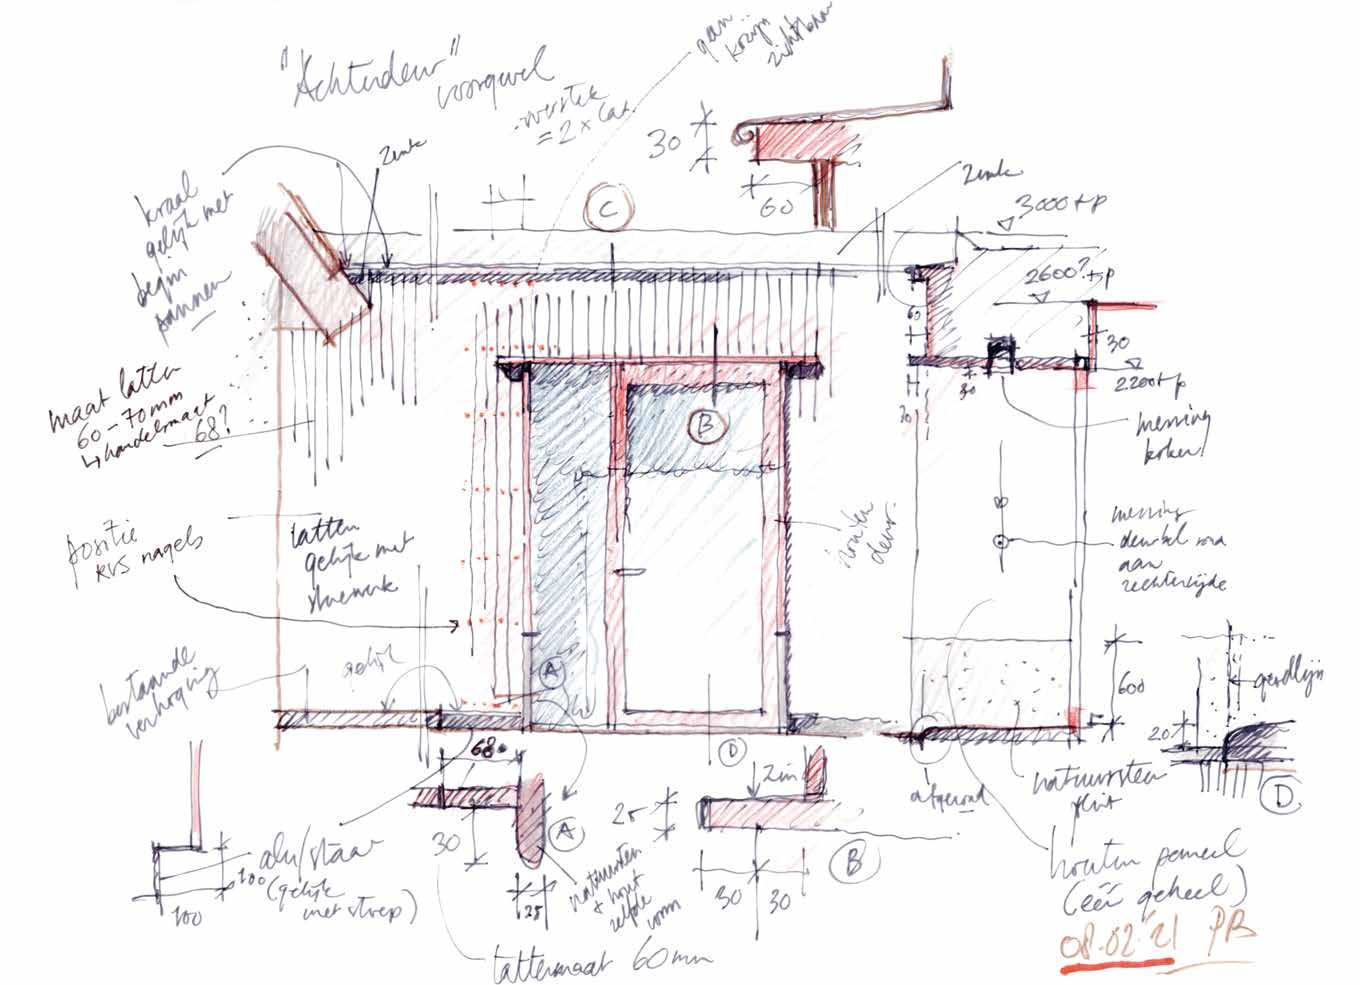 "Achterdeur"
voorgevel
overstek
= 2 x lat
aan
kozijn
zichtbaar
30
60
zink
zink
C
3000+p
2600? +p
30
2200+p
60
30
30
kraal
gelijk met
begin
pannen
maat latten
60-70mm
↳ handelsmaat
68?
B
messing
koker!
positie
RVS nagels
latten
gelijk met
stucwerk
houten
deur.
messing
deurbel
aan
rechterzijde
bestaande
verhoging
gelijk
A
D
600
grondlijn
20
D
afgerond
natuursteen
plint
68
30
A
25
zink
25
B
30
30
alu/staal
(gelijk
met stoep)
100
100
natuursteen
+ hout
zelfde
vorm
houten paneel
(één geheel)
lattenmaat 60mm
08.02.'21 PB